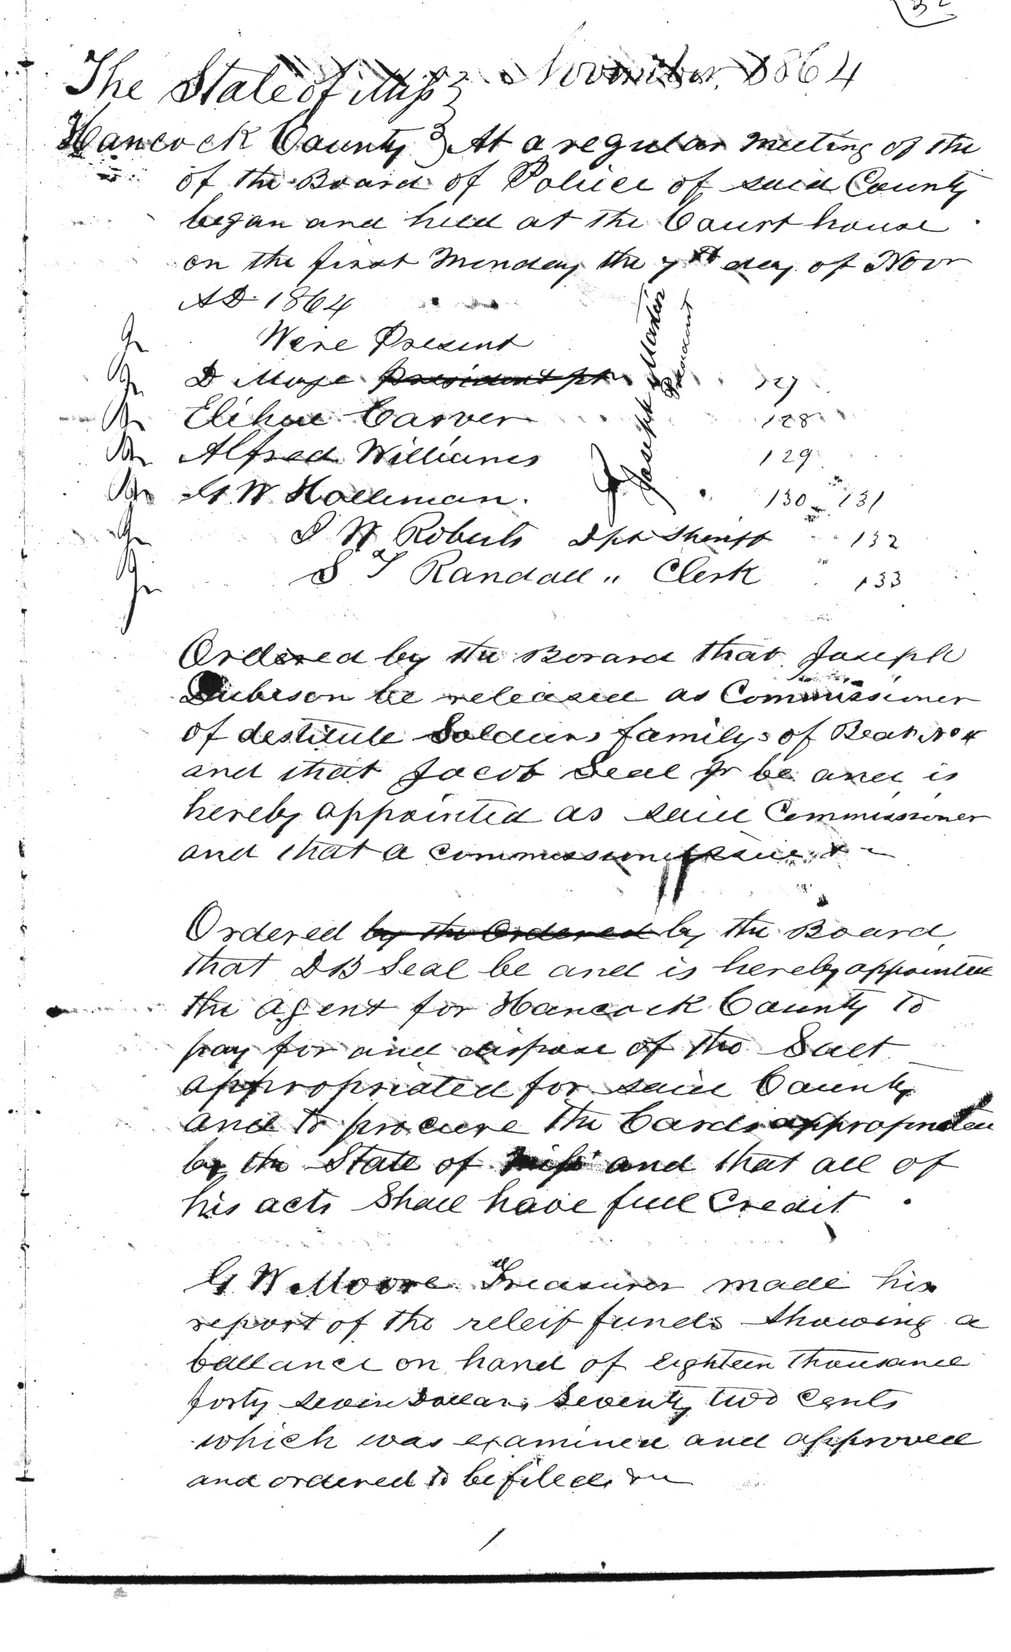 November, 1864
The State of Miss }
Hancock County } At a regular meeting of the
of the Board of Police of said County
began and held at the Court house
on the first Monday the 7th day of Novr
AD 1864
Were Present
D Moye president pt 127
Elihue Carver 128
Alfred Williams 129
G W Holleman. 130 131
Joseph Martin
President
W Roberts Dpt Sheriff 132
S T Randall " Clerk 133
Ordered by the Borard that Joseph
be released as Commissioner
of destitute Soldiers familys of Beat No 4
and that Jacob Seal Jr be and is
hereby appointed as said Commissioner
and that a commission issue &c
Ordered by the Ordered by the Board
that D B Seal be and is hereby appointed
the agent for Hancock County to
pay for and dispose of the Salt
appropriated for said County
and to procure the Cards appropriated
by the State of Miss and that all of
his acts Shall have full Credit
G W Moore Treasurer made his
report of the releif funds showing a
ballance on hand of Eighteen thousand
forty seven Dollars Seventy two Cents
which was examined and approved
and ordered to be filed &c